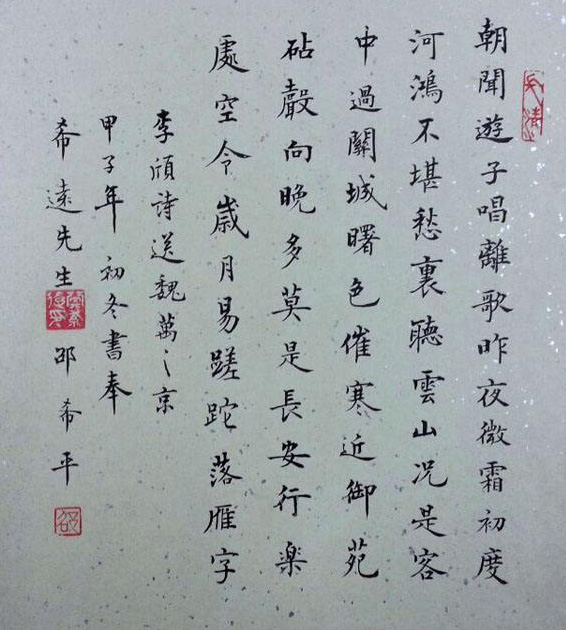 朝聞遊子唱離歌昨夜微霜初度
河鴻不堪愁裏聽雲山况是客
中過關城曙色催寒近御苑
砧聲向晚多莫是長安行楽
處空令歲月易蹉跎落雁字
李頎詩送魏萬之京
甲子年初冬書奉
希遠先生 邵希平